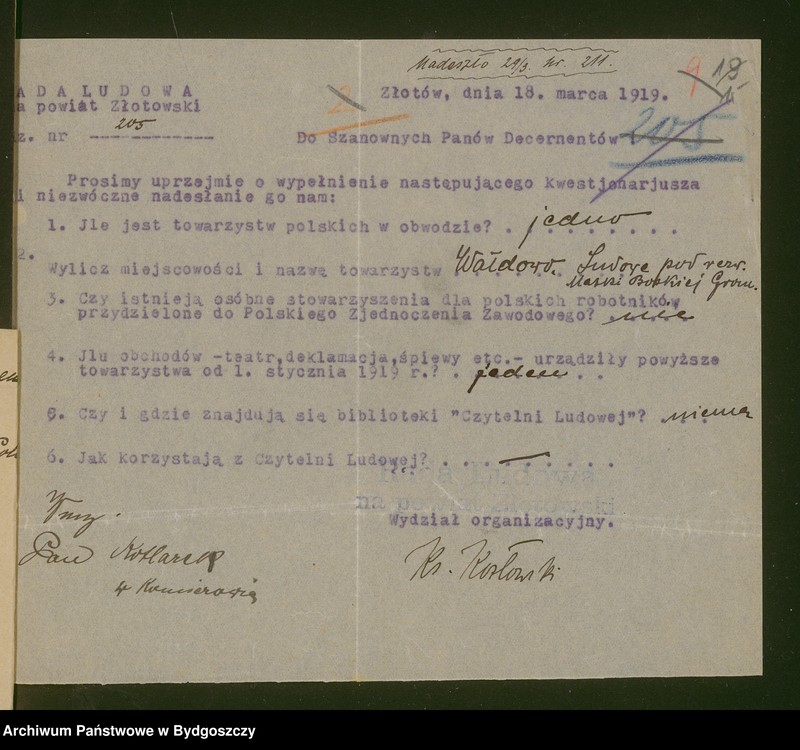 Nadeszło 29/3 nr. 211.
ADA LUDOWA
a powiat Złotowski
Złotów, dnia 18. marca 1919.
9 18
15
2
z. nr 205
Do Szanownych Panów Decernentów
205
Prosimy uprzejmie o wypełnienie następującego kwestjonarjusza
i niezwóczne nadesłanie go nam:
1. Jle jest towarzystw polskich w obwodzie? . jedno . . . . . .
2.
Wylicz miejscowości i nazwę towarzystw Wałdowo. Ludowe pod wezw.
Matki Boskiej Grom.
3. Czy istnieją osóbne stowarzyszenia dla polskich robotników
przydzielone do Polskiego Zjednoczenia Zawodowego? . nie
4. Jlu obchodów -teatr,deklamacja,śpiewy etc.- urządziły powyższe
towarzystwa od 1. stycznia 1919 r.? . jeden . .
5. Czy i gdzie znajdują się biblioteki "Czytelni Ludowej"? . niema
6. Jak korzystają z Czytelni Ludowej? . . . — . . . .
Rada Ludowa
na powiat Złotowski
Wydział organizacyjny.
Wny.
Pan Kotlarek
w Kamierowie
Ks. Kozłowski
Archiwum Państwowe w Bydgoszczy